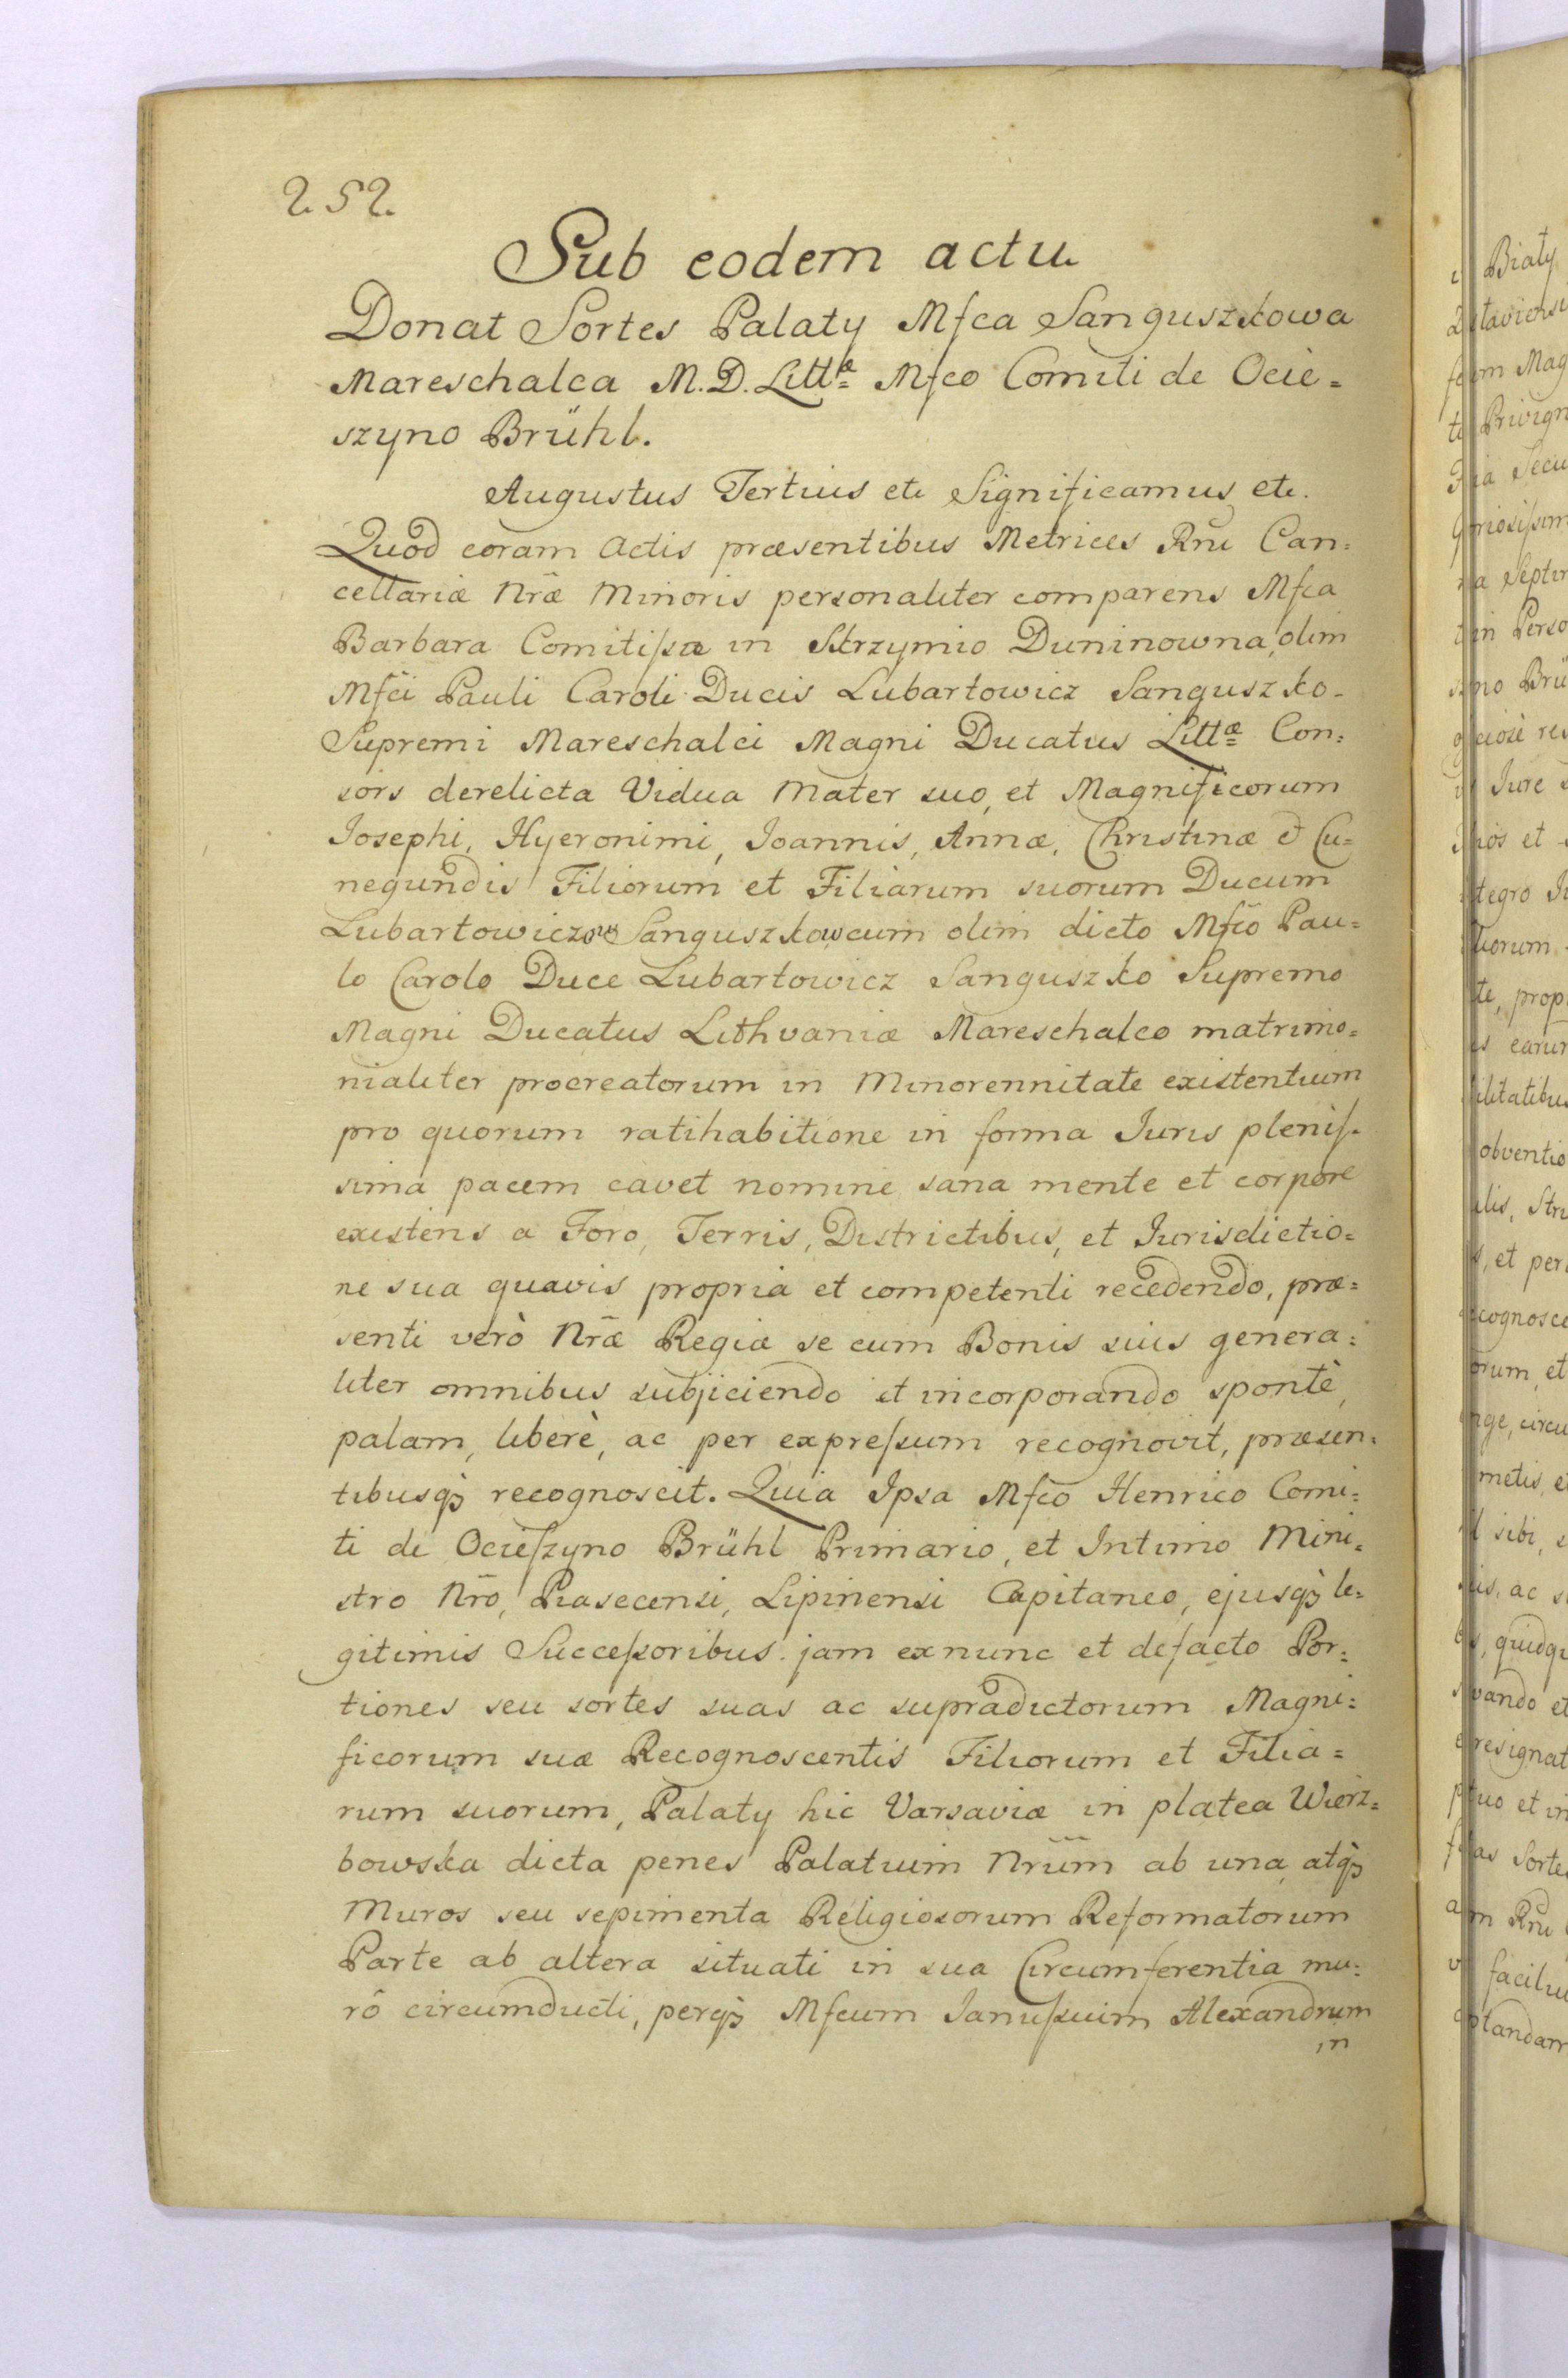 252.
Sub eodem actu
Donat Sortes Palaty Mfca Sanguszkowa
Mareschalca M.D. Littæ Mfco Comiti de Ocie=
szyno Brühl.
Augustus Tertius etc Significamus etc.
Quod coram Actis præsentibus Metrices Rni Can=
cellariæ Nræ Minoris personaliter comparens Mfca
Barbara Comitiſsa in Skrzynno Duninowna, olim
Mfci Pauli Caroli Ducis Lubartowicz Sanguszko-
Supremi Mareschalci Magni Ducatus Littæ Con=
sors derelicta Vidua Mater suo, et Magnificorum
Josephi, Hyeronimi, Joannis, Annæ, Christinæ et Cu=
negundis Filiorum et Filiarum suorum Ducum
Lubartowiczow Sanguszkow cum olim dicto Mfco Pau=
lo Carolo Duce Lubartowicz Sanguszko Supremo
Magni Ducatus Lithvaniæ Mareschalco matrimo=
nialiter procreatorum in Minorennitate existentium
pro quorum ratihabitione in forma Juris pleniſ-
sima pacem cavet nomine, sana mente et corpore
existens a Foro, Terris, Districtibus, et Jurisdictio=
ne sua quavis propria et competenti recedendo, præ=
senti verò Nræ Regiæ se cum Bonis suis genera=
liter omnibus subjiciendo et incorporando spontè,
palam, liberè, ac per expreſsum recognovit, præsen=
tibusqꝫ recognoscit. Quia Ipsa Mfco Henrico Comi=
ti de Ocieſzyno Brühl Primario, et Intimo Mini=
stro Nro, Piasecensi, Lipinensi Capitaneo, ejusqꝫ le=
gitimis Succeſsoribus jam exnunc et defacto Por=
tiones seu sortes suas ac supradictorum Magni=
ficorum suæ Recognoscentis Filiorum et Filia=
rum suorum, Palaty hic Varsaviæ in platea Wierz=
bowska dicta penes Palatium Nrum ab una, atqꝫ
Muros seu sepimenta Religiosorum Reformatorum
Parte ab altera situati in sua Circumferentia mu=
rô circumducti, perqꝫ Mfcum Januſsium Alexandrum
in